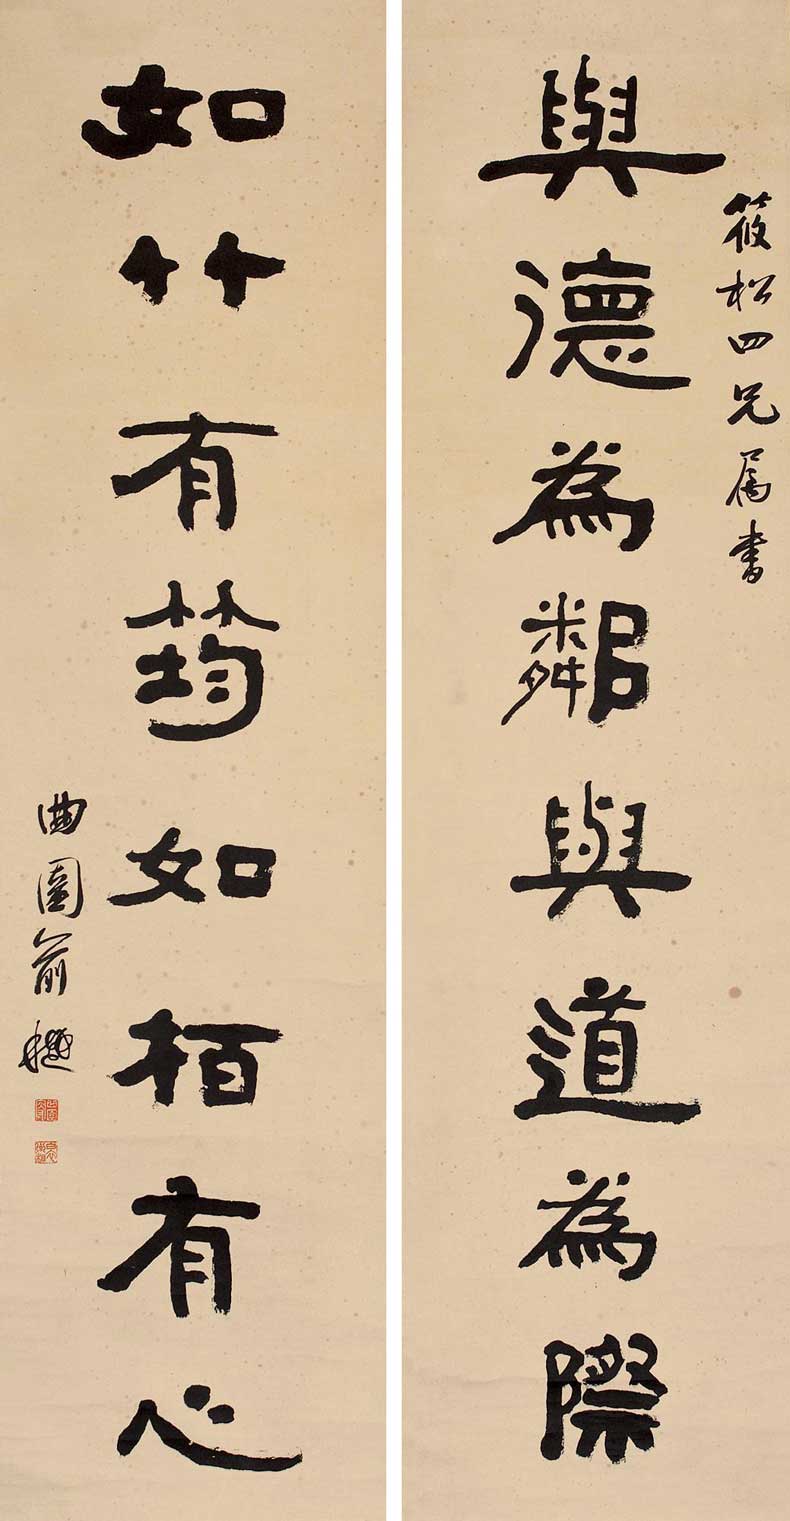 與德為鄰與道為際
筱松四兄屬書
如竹有筠如栢有心
曲園俞樾